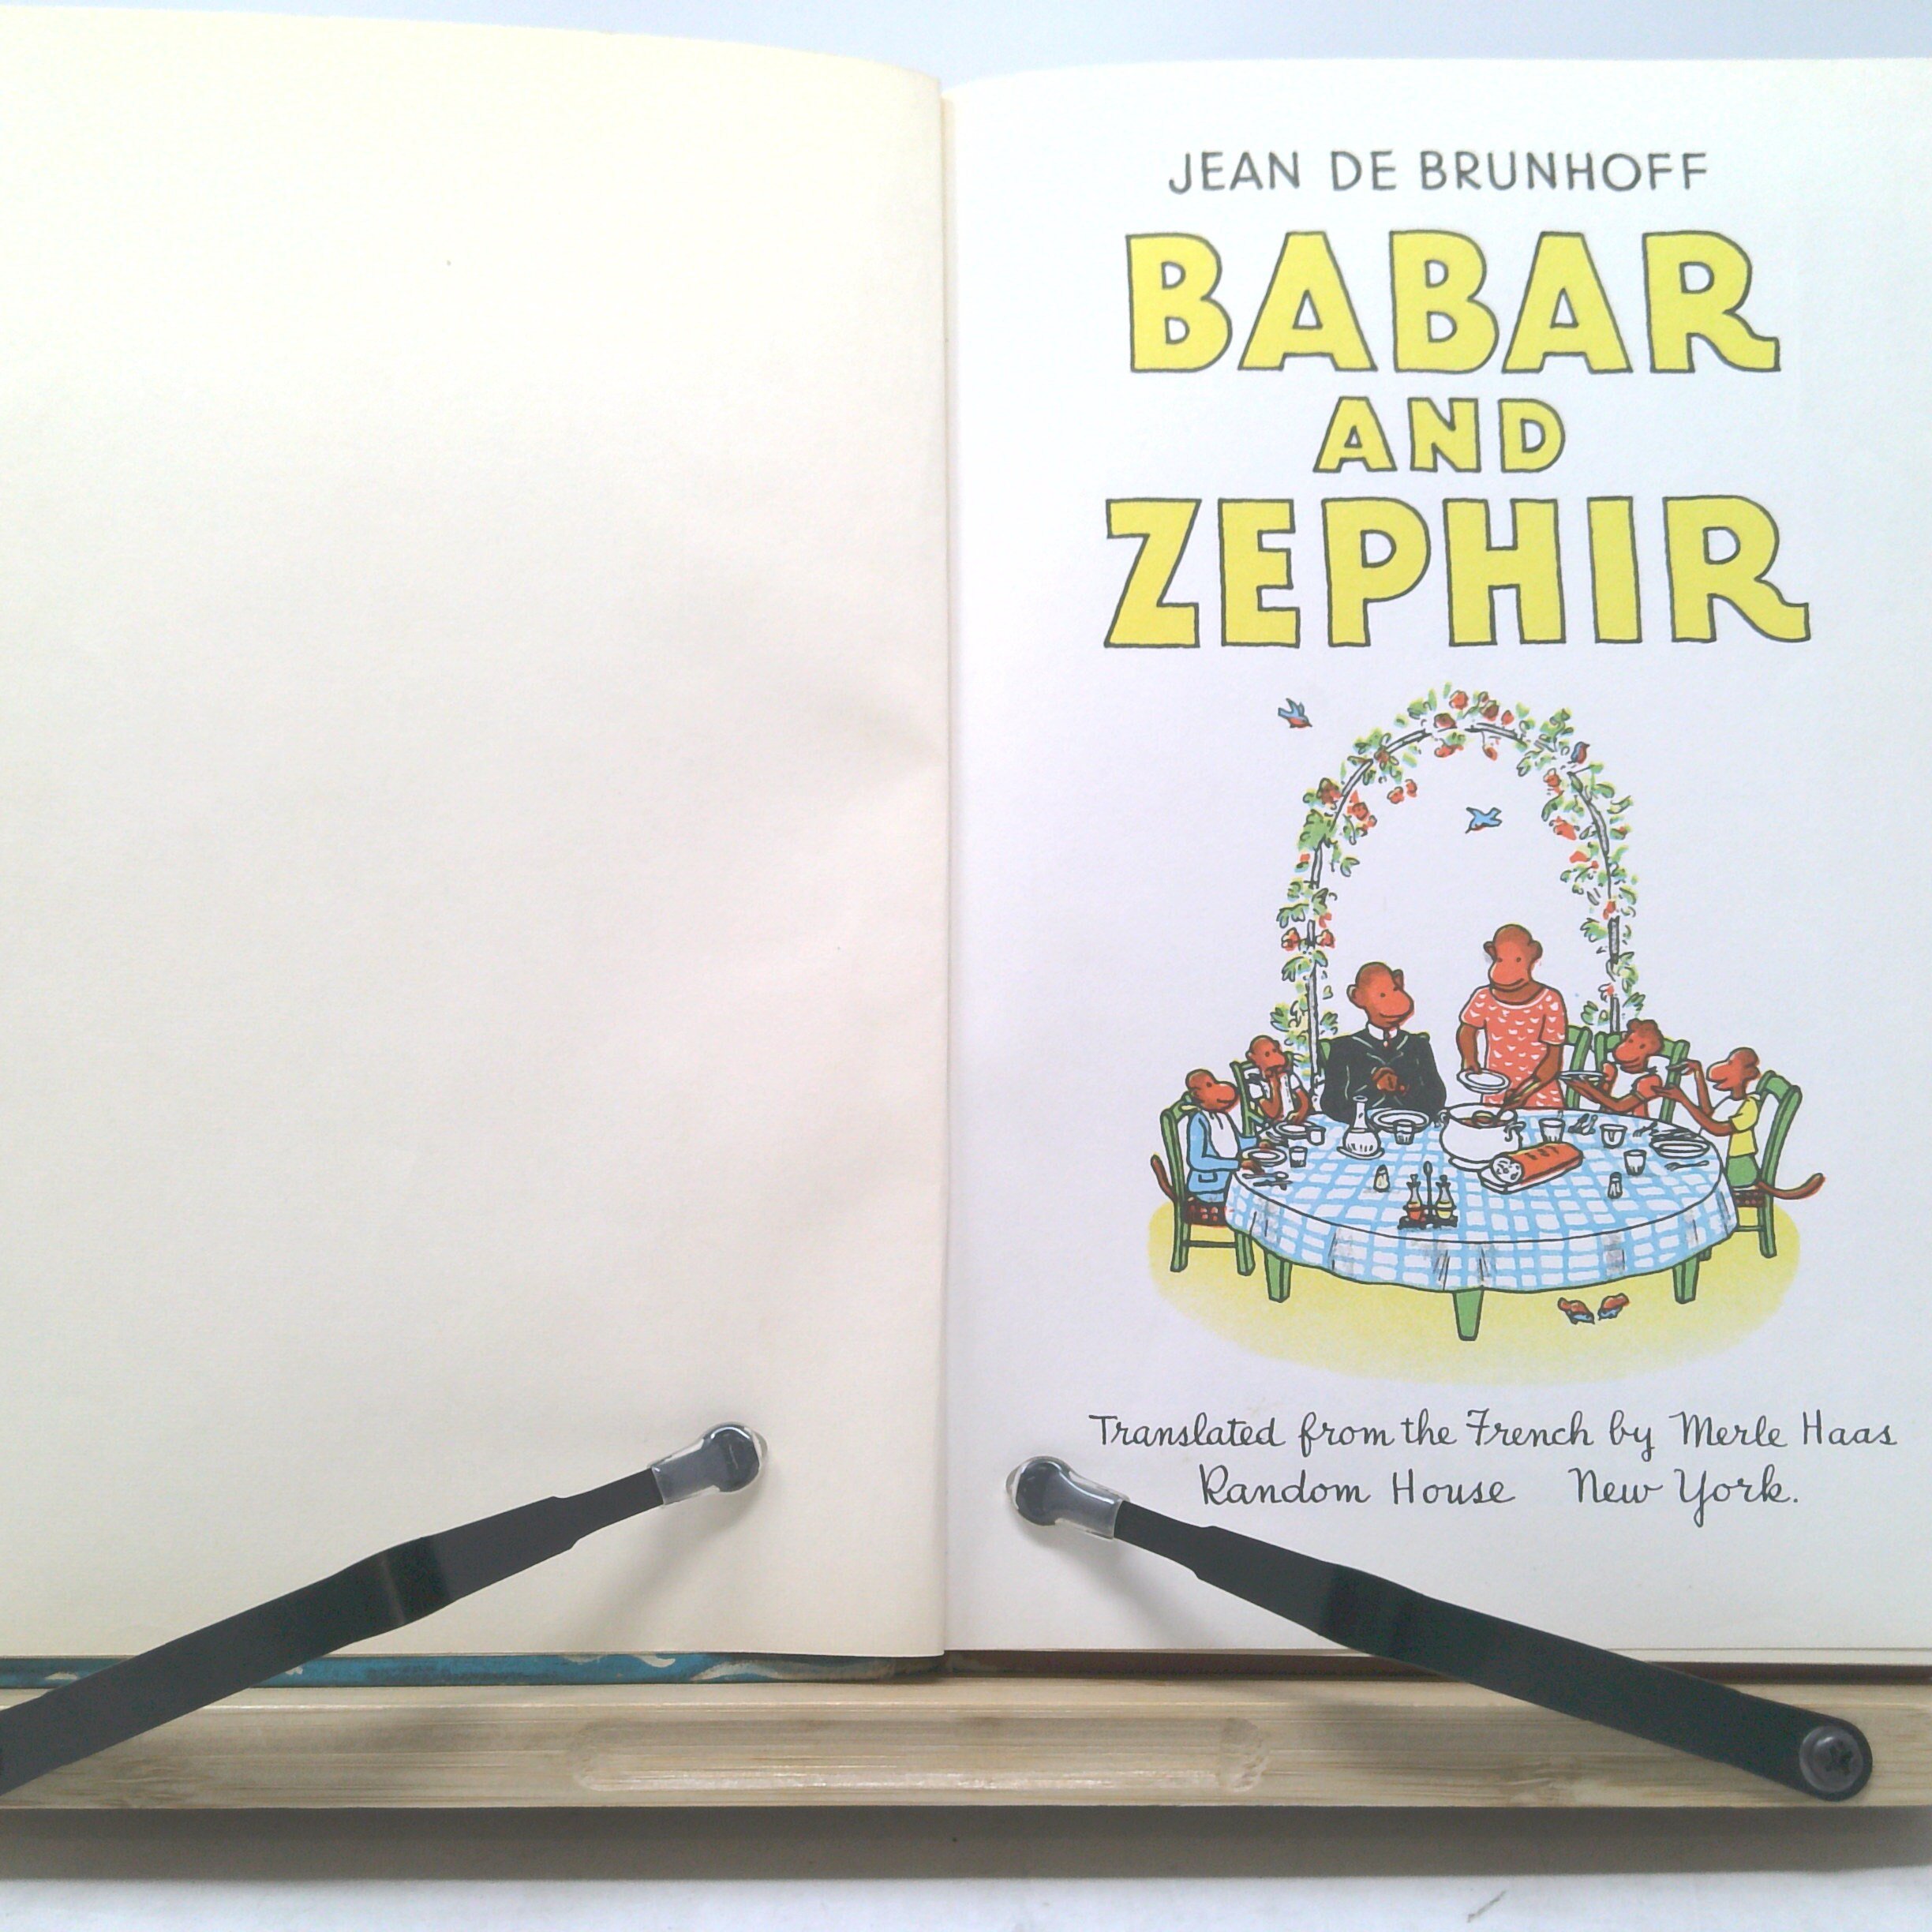 JEAN DE BRUNHOFF
BABAR
AND
ZEPHIR
Translated from the French by Merle Haas
Random House New York.